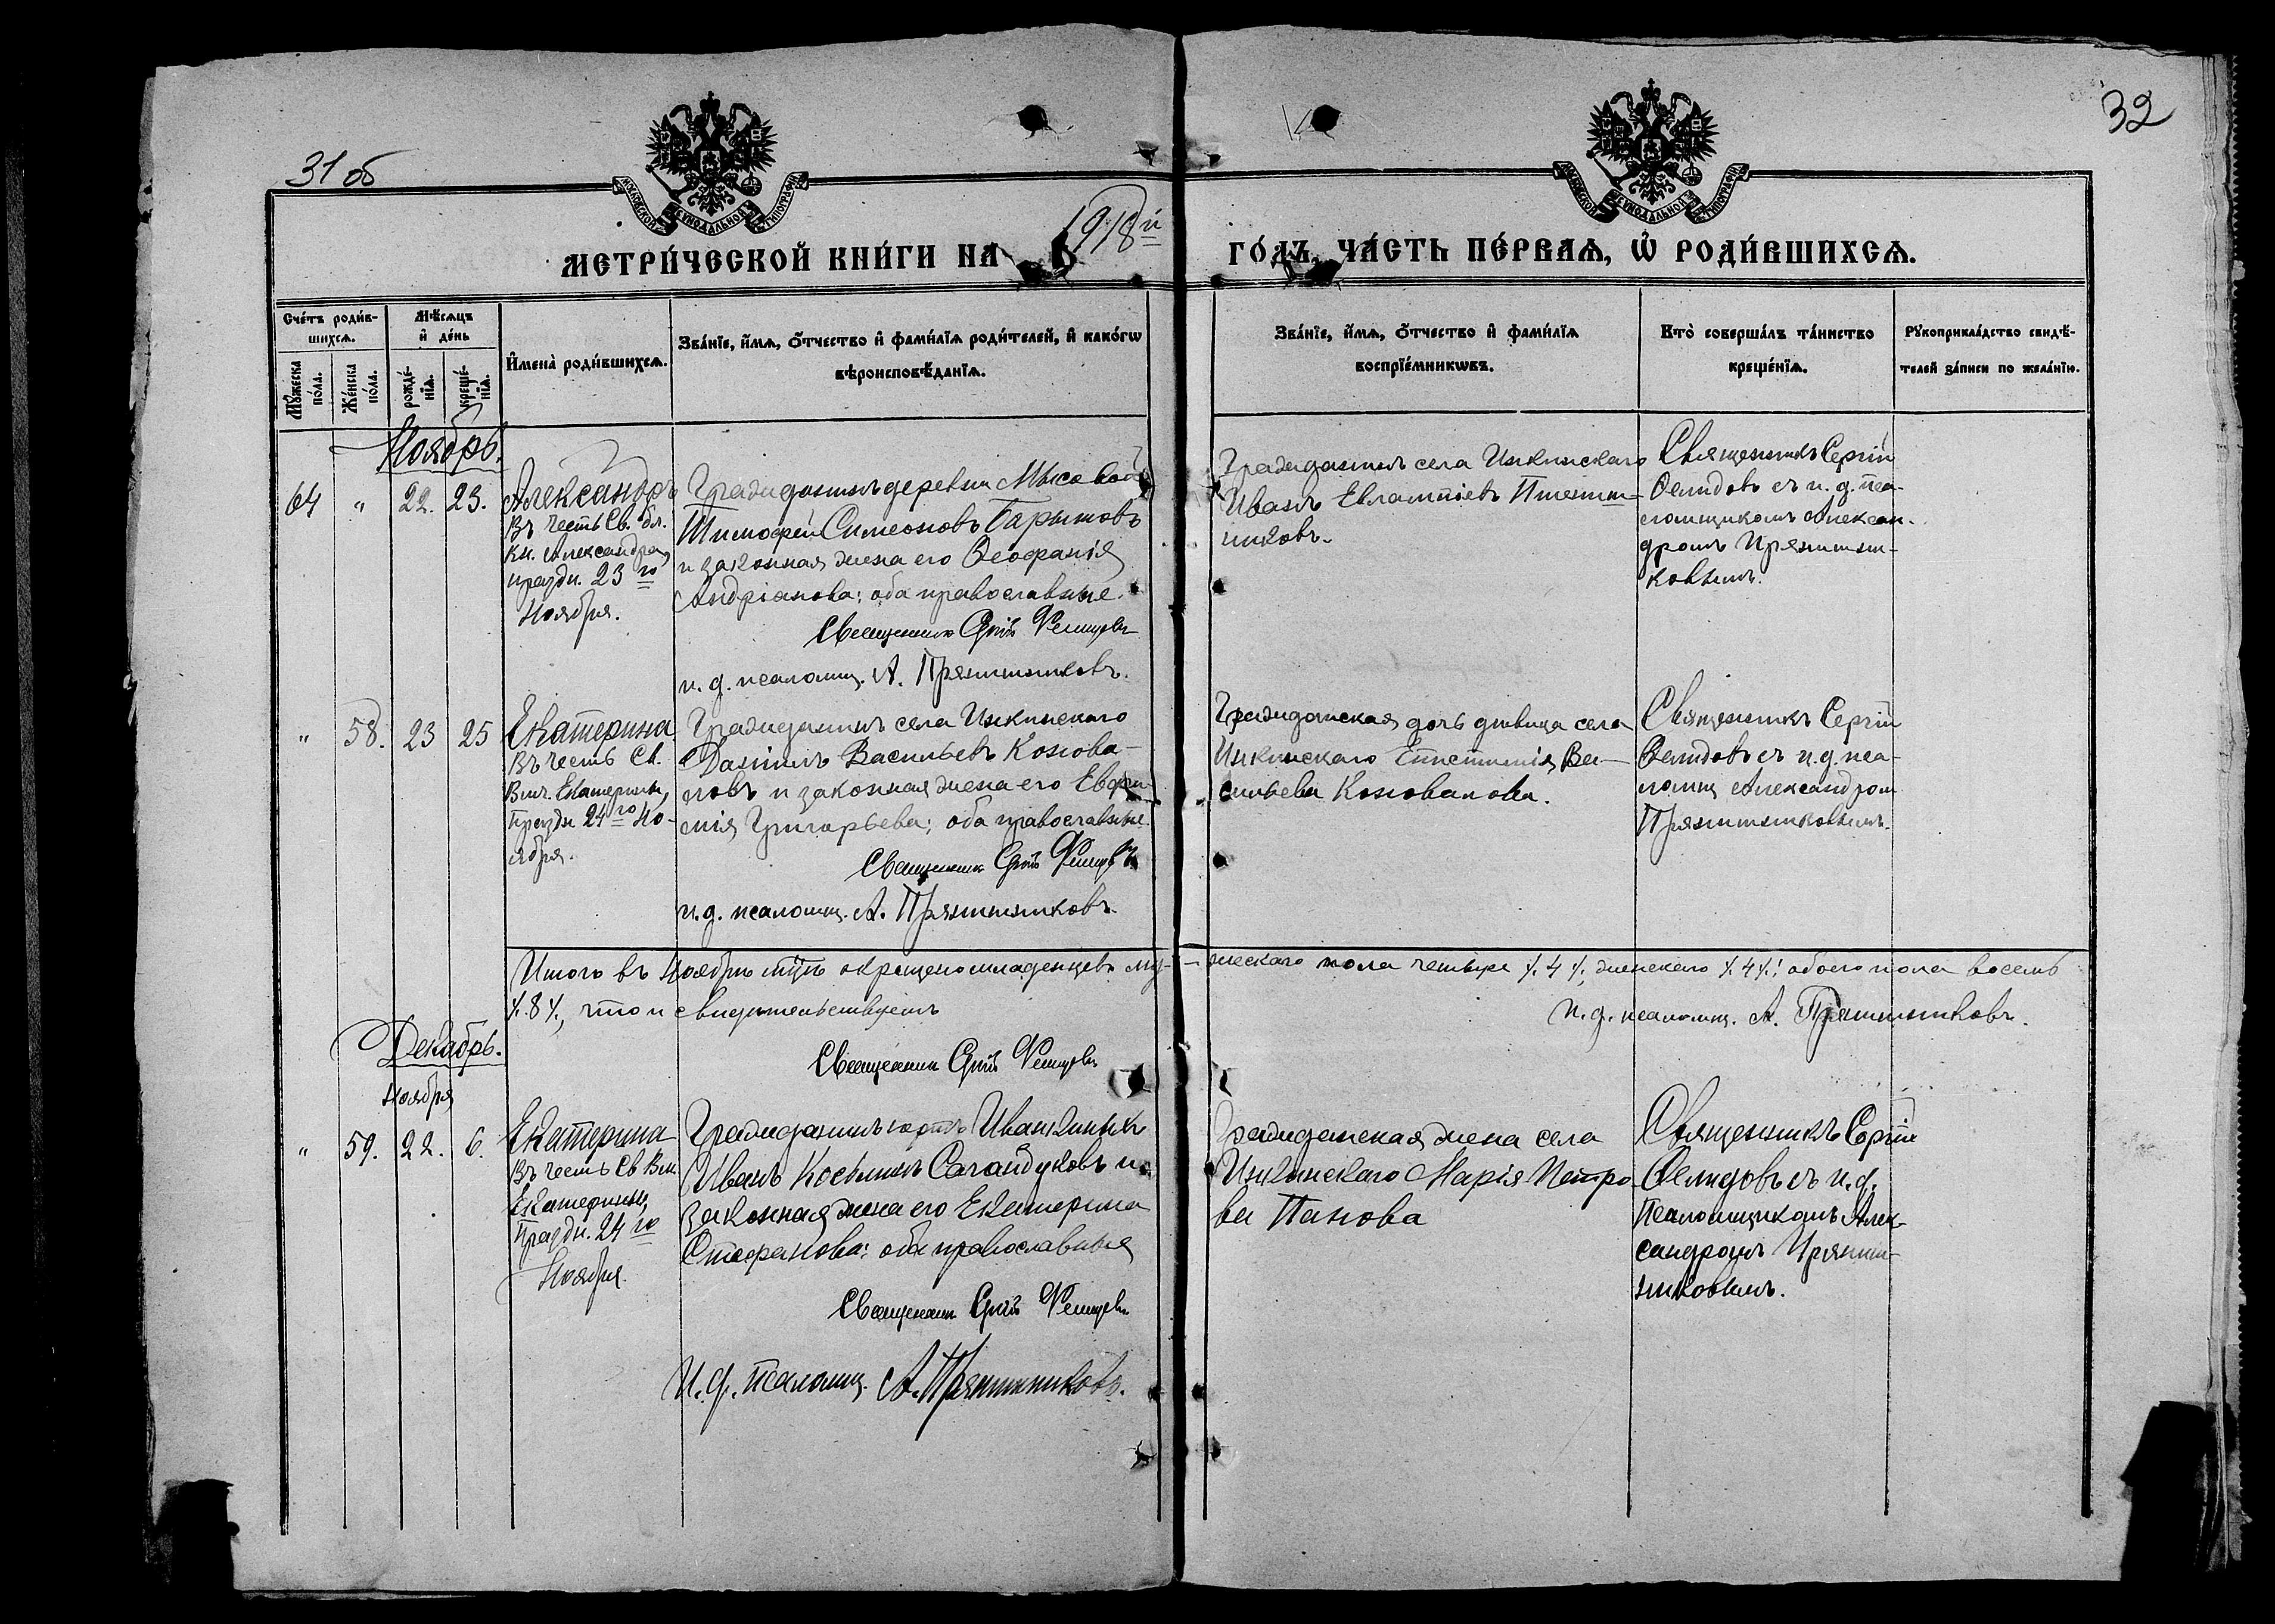 31 об
32
МОСКОВСКОЙ СѴНОДАЛЬНОЙ ТИПОГРАФІИ
МОСКОВСКОЙ СѴНОДАЛЬНОЙ ТИПОГРАФІИ
МЕТРИ́ЧЕСКОЙ КНИ́ГИ НА 1918й ГО́ДЪ, ЧА́СТЬ ПЕ́РВАѦ, Ѡ҆ РОДИ́ВШИХСѦ.
Сче́тъ роди́в-
шихсѧ.
Мꙋ́жеска
по́ла.
Же́нска
по́ла.
Мѣ́сѧцъ
и҆ де́нь
рожде́-
нїѧ.
креще́-
нїѧ.
И҆мена̀ роди́вшихсѧ.
Зва́нїе, и҆́мѧ, ѻ҆́тчество и҆ фамі́лїѧ роди́телей, и҆ како́гѡ
вѣроисповѣ́данїѧ.
Зва́нїе, и҆́мѧ, ѻ҆́тчество и҆ фамі́лїѧ
воспрїе́мникѡвъ.
Кто̀ соверша́лъ та́инство
креще́нїѧ.
Рꙋкоприкла́дство свидѣ́-
телей за́писи по жела́нїю.
Ноябрь.
64 " 22. 23.
Александръ
Въ честь Св. бл.
Кн. Александра,
праздн. 23го
Ноября.
Гражданинъ деревни Мысовой
Тимофей Симеоновъ Барышовъ
и законная жена его Ѳеофанія
Андріанова; оба православные.
Священникъ Сергій
и. д. псаломщ. А. Прянишниковъ.
Гражданинъ села Инкинскаго
Иванъ Евлампіевъ
никовъ.
Священникъ Сергій
съ и. д. пса-
ломщикомъ Алексан-
дромъ Прянишни-
ковымъ.
" 58. 23 25
Екатерина
Въ честь Св.
Вмч. Екатерины,
праздн. 24го Но-
ября.
Гражданинъ села Инкинскаго
Даніилъ Васильевъ Конова-
ловъ и законная жена его Евфи-
мія Григорьева; оба православные.
Священникъ Сергій
и. д. псаломщ. А. Прянишниковъ.
Гражданская дочь дѣвица села
Инкинскаго Ва-
сильева Коновалова.
Священникъ Сергій
съ и. д. пса-
ломщ Александром
Прянишниковымъ.
Итого въ Ноябрѣ мцѣ окрещено младенцевъ му- жескаго пола четыре /.4/., женскаго /.4/.; обоего пола восемь
/.8/., что и свидѣтельствуемъ
и. д. псаломщ. А. Прянишниковъ.
Священникъ Сергій
Декабрь.
Ноября
" 59. 22. 6.
Екатерина
Въ честь Св Вмч.
Екатерины,
Праздн. 24го
Ноября.
Гражданинъ юртъ Иванкиныхъ
Иванъ Косьминъ Сагандуковъ и
законная жена его Екатерина
Стефанова; оба православные
Священникъ Сергій
И. д. псаломщ. А. Прянишниковъ.
Гражданская жена села
Инкинскаго Марія Петро-
ва Панова
Священникъ Сергій
съ и. д.
Псаломщикомъ Алек-
сандромъ Пряниш-
никовымъ.